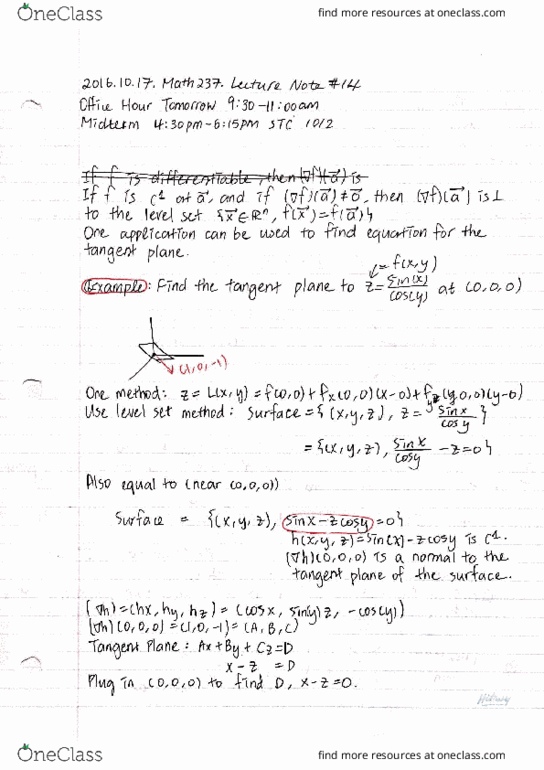 OneClass
find more resources at oneclass.com
2016.10.17. Math237. Lecture Note #14
Office Hour Tomorrow 9:30-11:00am
Midterm 4:30pm-6:15pm STC 1012
If f is differentiable, then (∇f)(a⃗) is
If f is C¹ at a⃗, and if (∇f)(a⃗)≠0⃗, then (∇f)(a⃗) is ⊥
to the level set {x⃗∈ℝⁿ, f(x⃗)=f(a⃗)}
One application can be used to find equation for the
tangent plane.
=f(x,y)
Example: Find the tangent plane to z=sin(x)/cos(y) at (0,0,0)
(1,0,-1)
One method: z = L(x,y) = f(0,0)+fx(0,0)(x-0)+fy(0,0)(y-0)
Use level set method: Surface={(x,y,z), z= sinx/cosy}
={(x,y,z), sinx/cosy -z=0}
Also equal to (near (0,0,0))
Surface = {(x,y,z), sinx-zcosy=0}
h(x,y,z)=sin(x)-zcosy is C¹.
(∇h)(0,0,0) is a normal to the
tangent plane of the surface.
(∇h)=(hx, hy, hz)=(cosx, sin(y)z, -cos(y))
(∇h)(0,0,0)=(1,0,-1)=(A,B,C)
Tangent Plane: Ax+By+Cz=D
x-z =D
Plug in (0,0,0) to find D, x-z=0.
OneClass
find more resources at oneclass.com